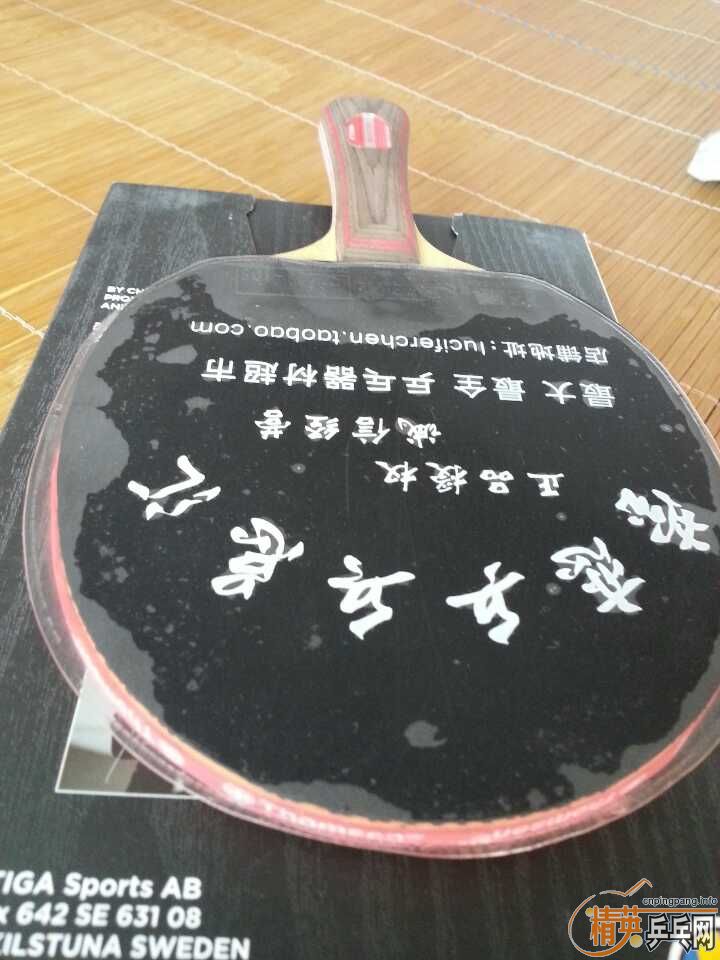 乒乓总汇
正品授权
诚信经营
最大 最全 乒乓器材超市
店铺地址:luciferchen.taobao.com
TIGA Sports AB
x 642 SE 631 08
KILSTUNA SWEDEN
cnpingpang.info
精英乒乓网